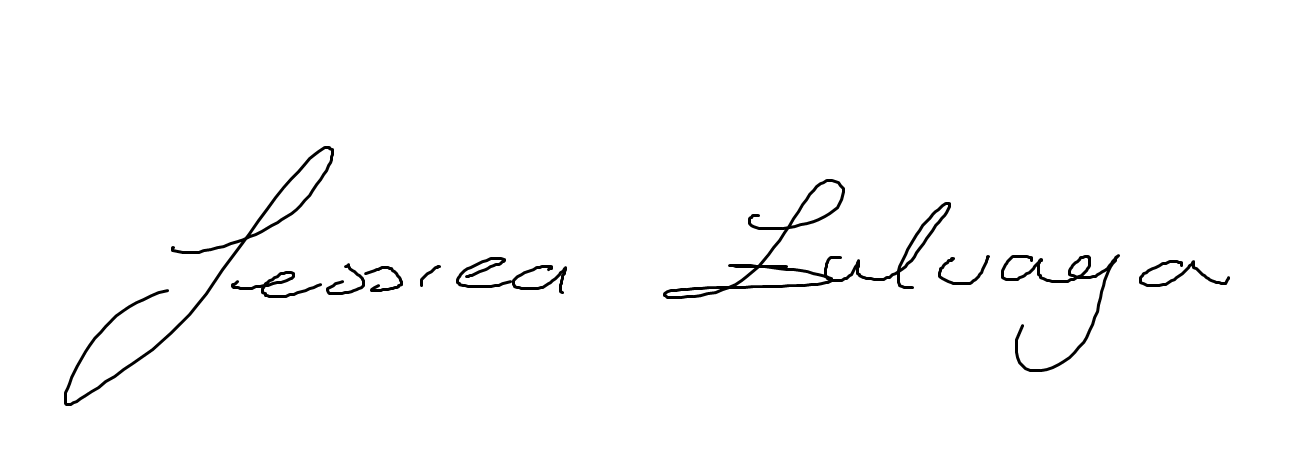 Jessica Zulvaga